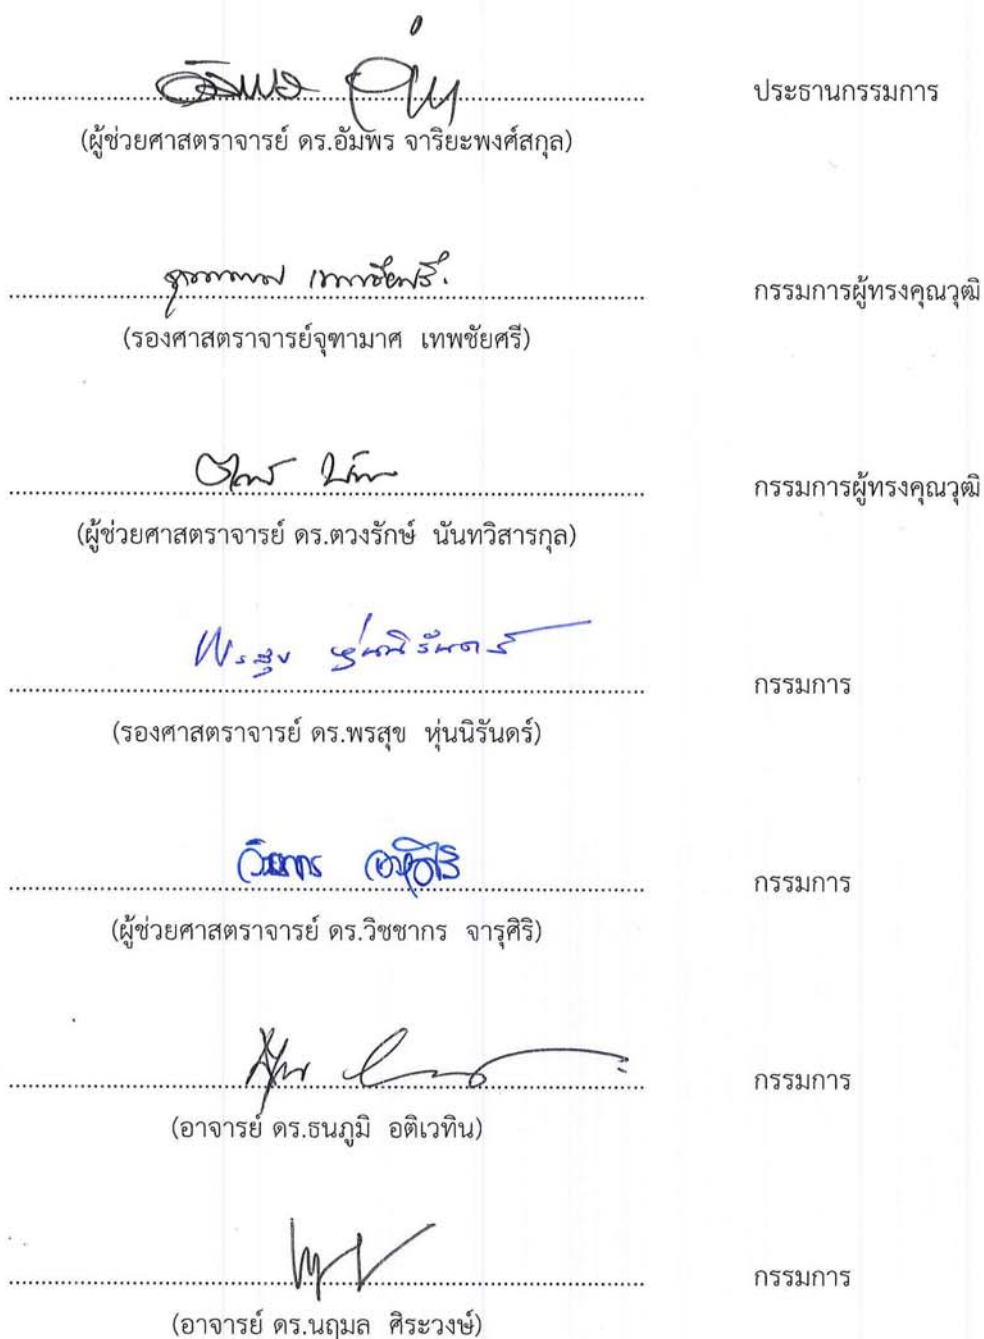 ประธานกรรมการ
(ผู้ช่วยศาสตราจารย์ ดร.อัมพร จาริยะพงศ์สกุล)
จุฑามาศ เทพชัยศรี
กรรมการผู้ทรงคุณวุฒิ
(รองศาสตราจารย์จุฑามาศ เทพชัยศรี)
กรรมการผู้ทรงคุณวุฒิ
(ผู้ช่วยศาสตราจารย์ ดร.ตวงรักษ์ นันทวิสารกุล)
พรสุข หุ่นนิรันดร์
กรรมการ
(รองศาสตราจารย์ ดร.พรสุข หุ่นนิรันดร์)
กรรมการ
(ผู้ช่วยศาสตราจารย์ ดร.วิชชากร จารุศิริ)
กรรมการ
(อาจารย์ ดร.ธนภูมิ อติเวทิน)
กรรมการ
(อาจารย์ ดร.นฤมล ศิระวงษ์)